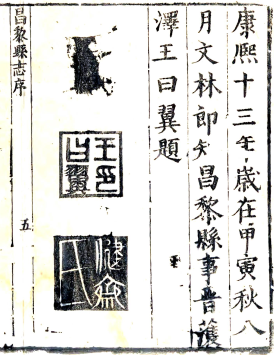 康熙十三年歲在甲寅秋八
月文林郎知昌黎縣事晉濩
澤王曰翼題
王曰翼
昌黎縣志序
五